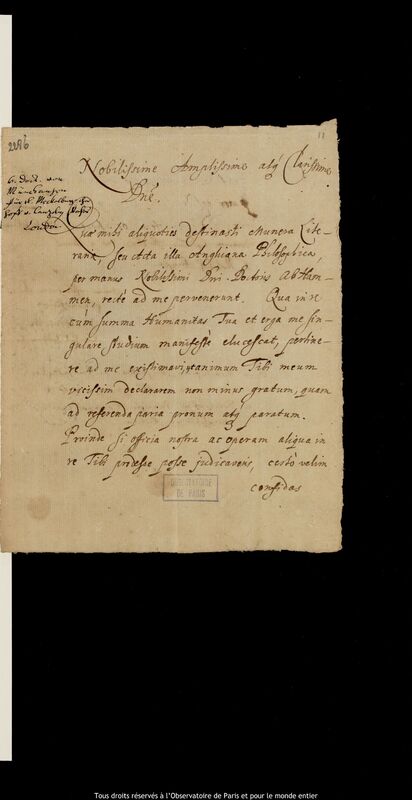 2286
11
Nobilissime Amplissime atq Clarissime
Dne.
6. Doct. von
London
Quae mihi aliquoties destinasti Munera Libe-
raria, seu Acta illa Angliana Philosophica,
per manus Nobilissimi Dni Doctoris Ab Ham-
men, recte ad me pervenerunt. Qua in re
cùm summa Humanitas Tua et erga me sin-
gulare studium manifestè elucescat, pertine-
re ad me existimavi, ut animum Tibi meum
vicissim declararem non minus gratum, quam
ad referenda paria pronum atq paratum.
Proinde si officia nostra ac operam aliqua in
re Tibi prodesse posse judicaveris, certò velim
confidas
OBSERVATOIRE
DE PARIS
Tous droits réservés à l'Observatoire de Paris et pour le monde entier